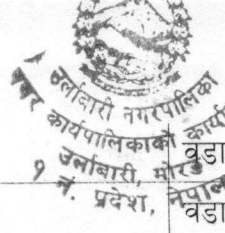 उर्लाबारी नगरपालिका
नगर कार्यपालिकाको कार्या
उर्लाबारी, मोरङ
१ नं. प्रदेश, नेपाल
वडा
वडा